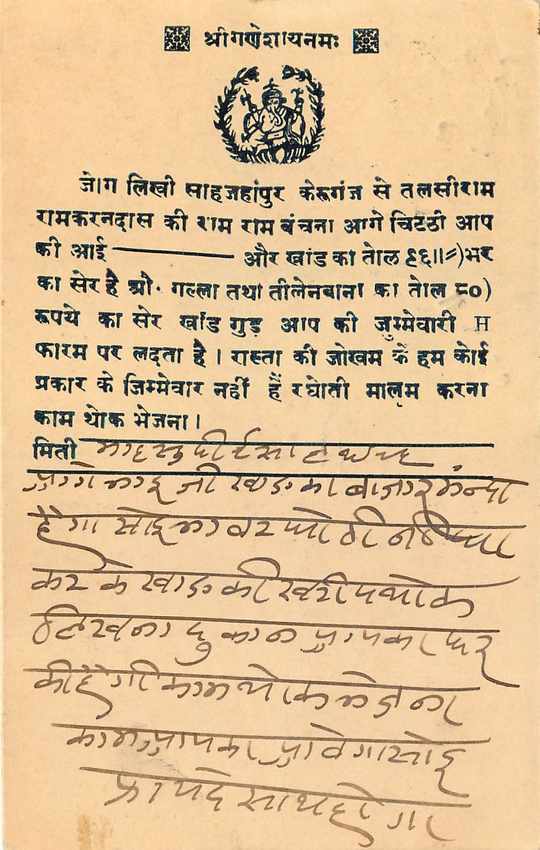 श्रीगणेशायनमः
जोग लिखी साहजहांपुर केरूगंज से तलसीराम
रामकरनदास की राम राम बंचना आगे चिटठी आप
की आई ——— और खांड का तोल ९६॥।=)भर
का सेर है श्री· गल्ला तथा तीलेनबाना का तोल ८०)
रूपये का सेर खांड गुड़ आप की जुम्मेवारी H
फारम पर लदता है। रास्ता की जोखम के हम कोई
प्रकार के जिम्मेवार नहीं हैं रघोती मालूम करना
काम थोक भेजना।
मिती
जी खाड का बाजार मन्दा
हैगा सोइ
कर के खाड की खरीद थोक
लिखना दुकान आपका घर
की हैगी काम थोक भेजना
काम आपका आवेगा सोइ
फायदे साथ होगा